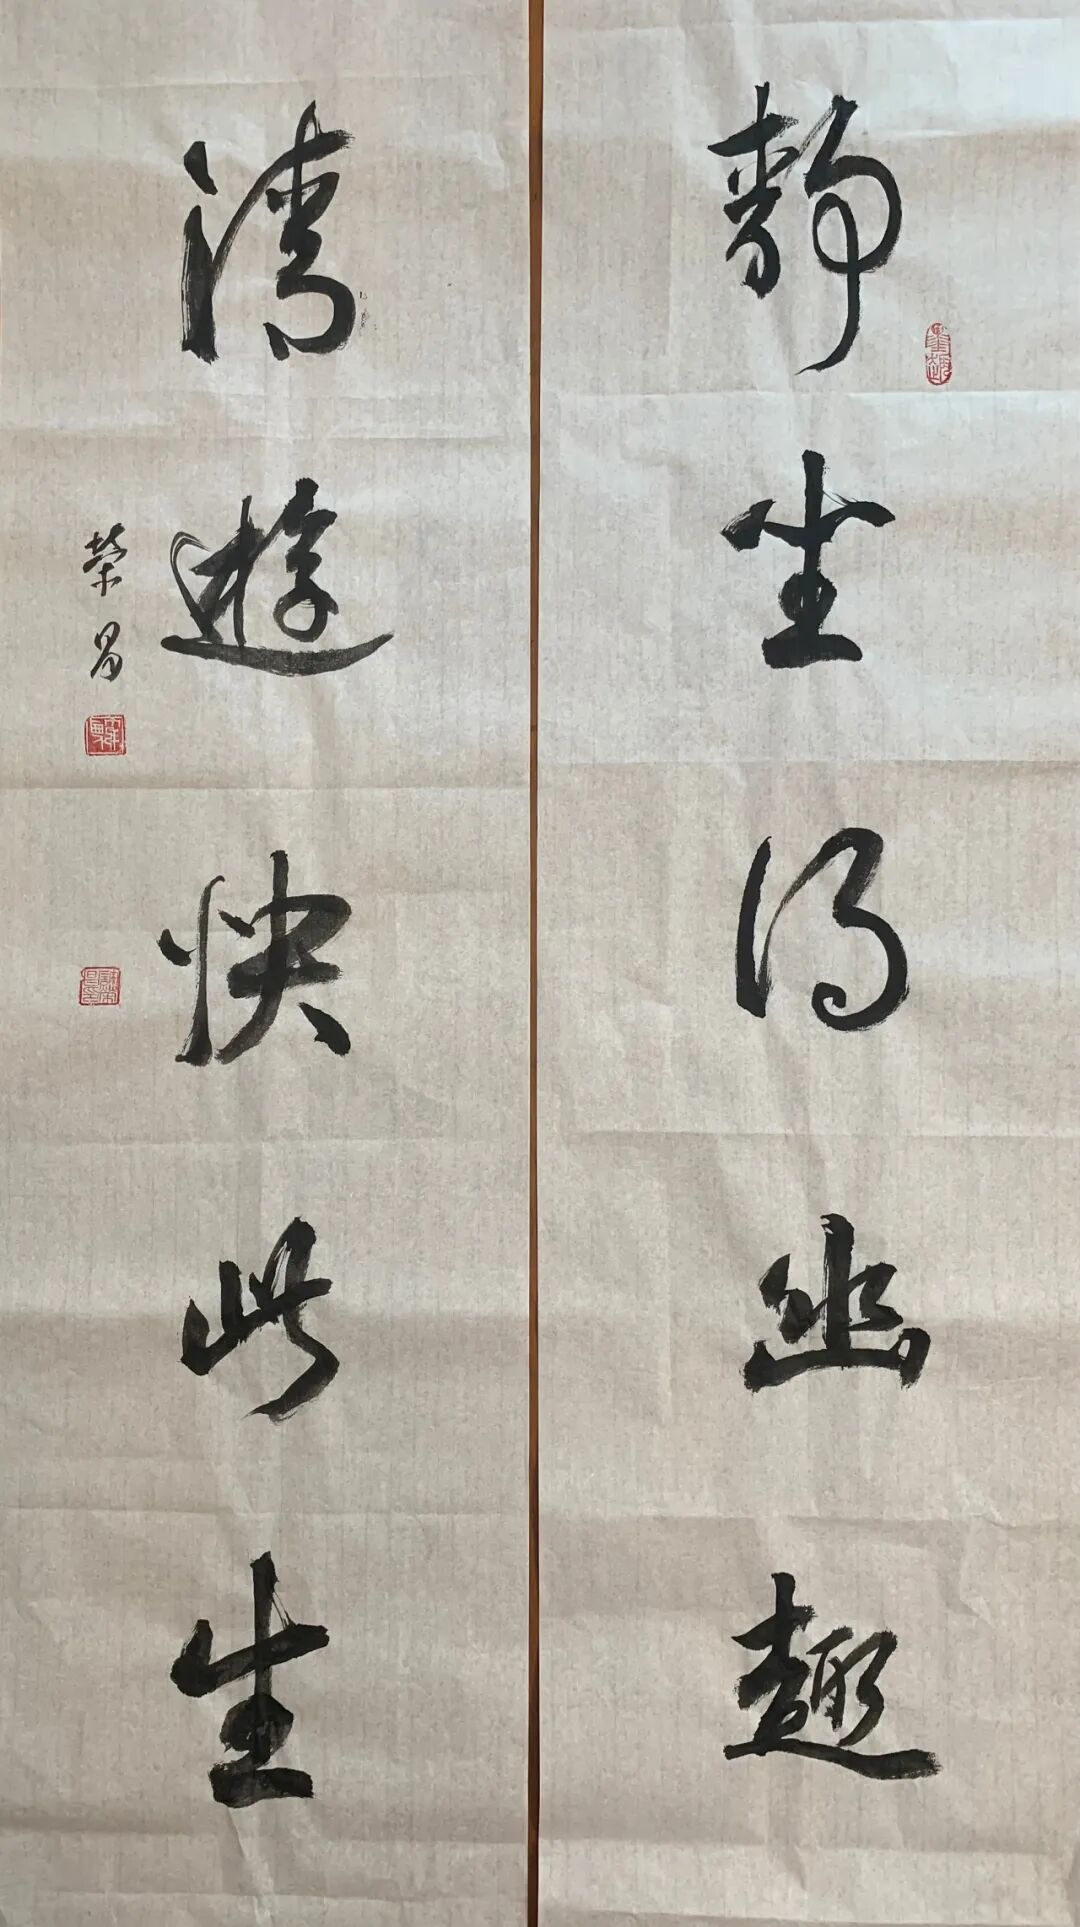 靜坐得幽趣
清遊快此生
榮昌